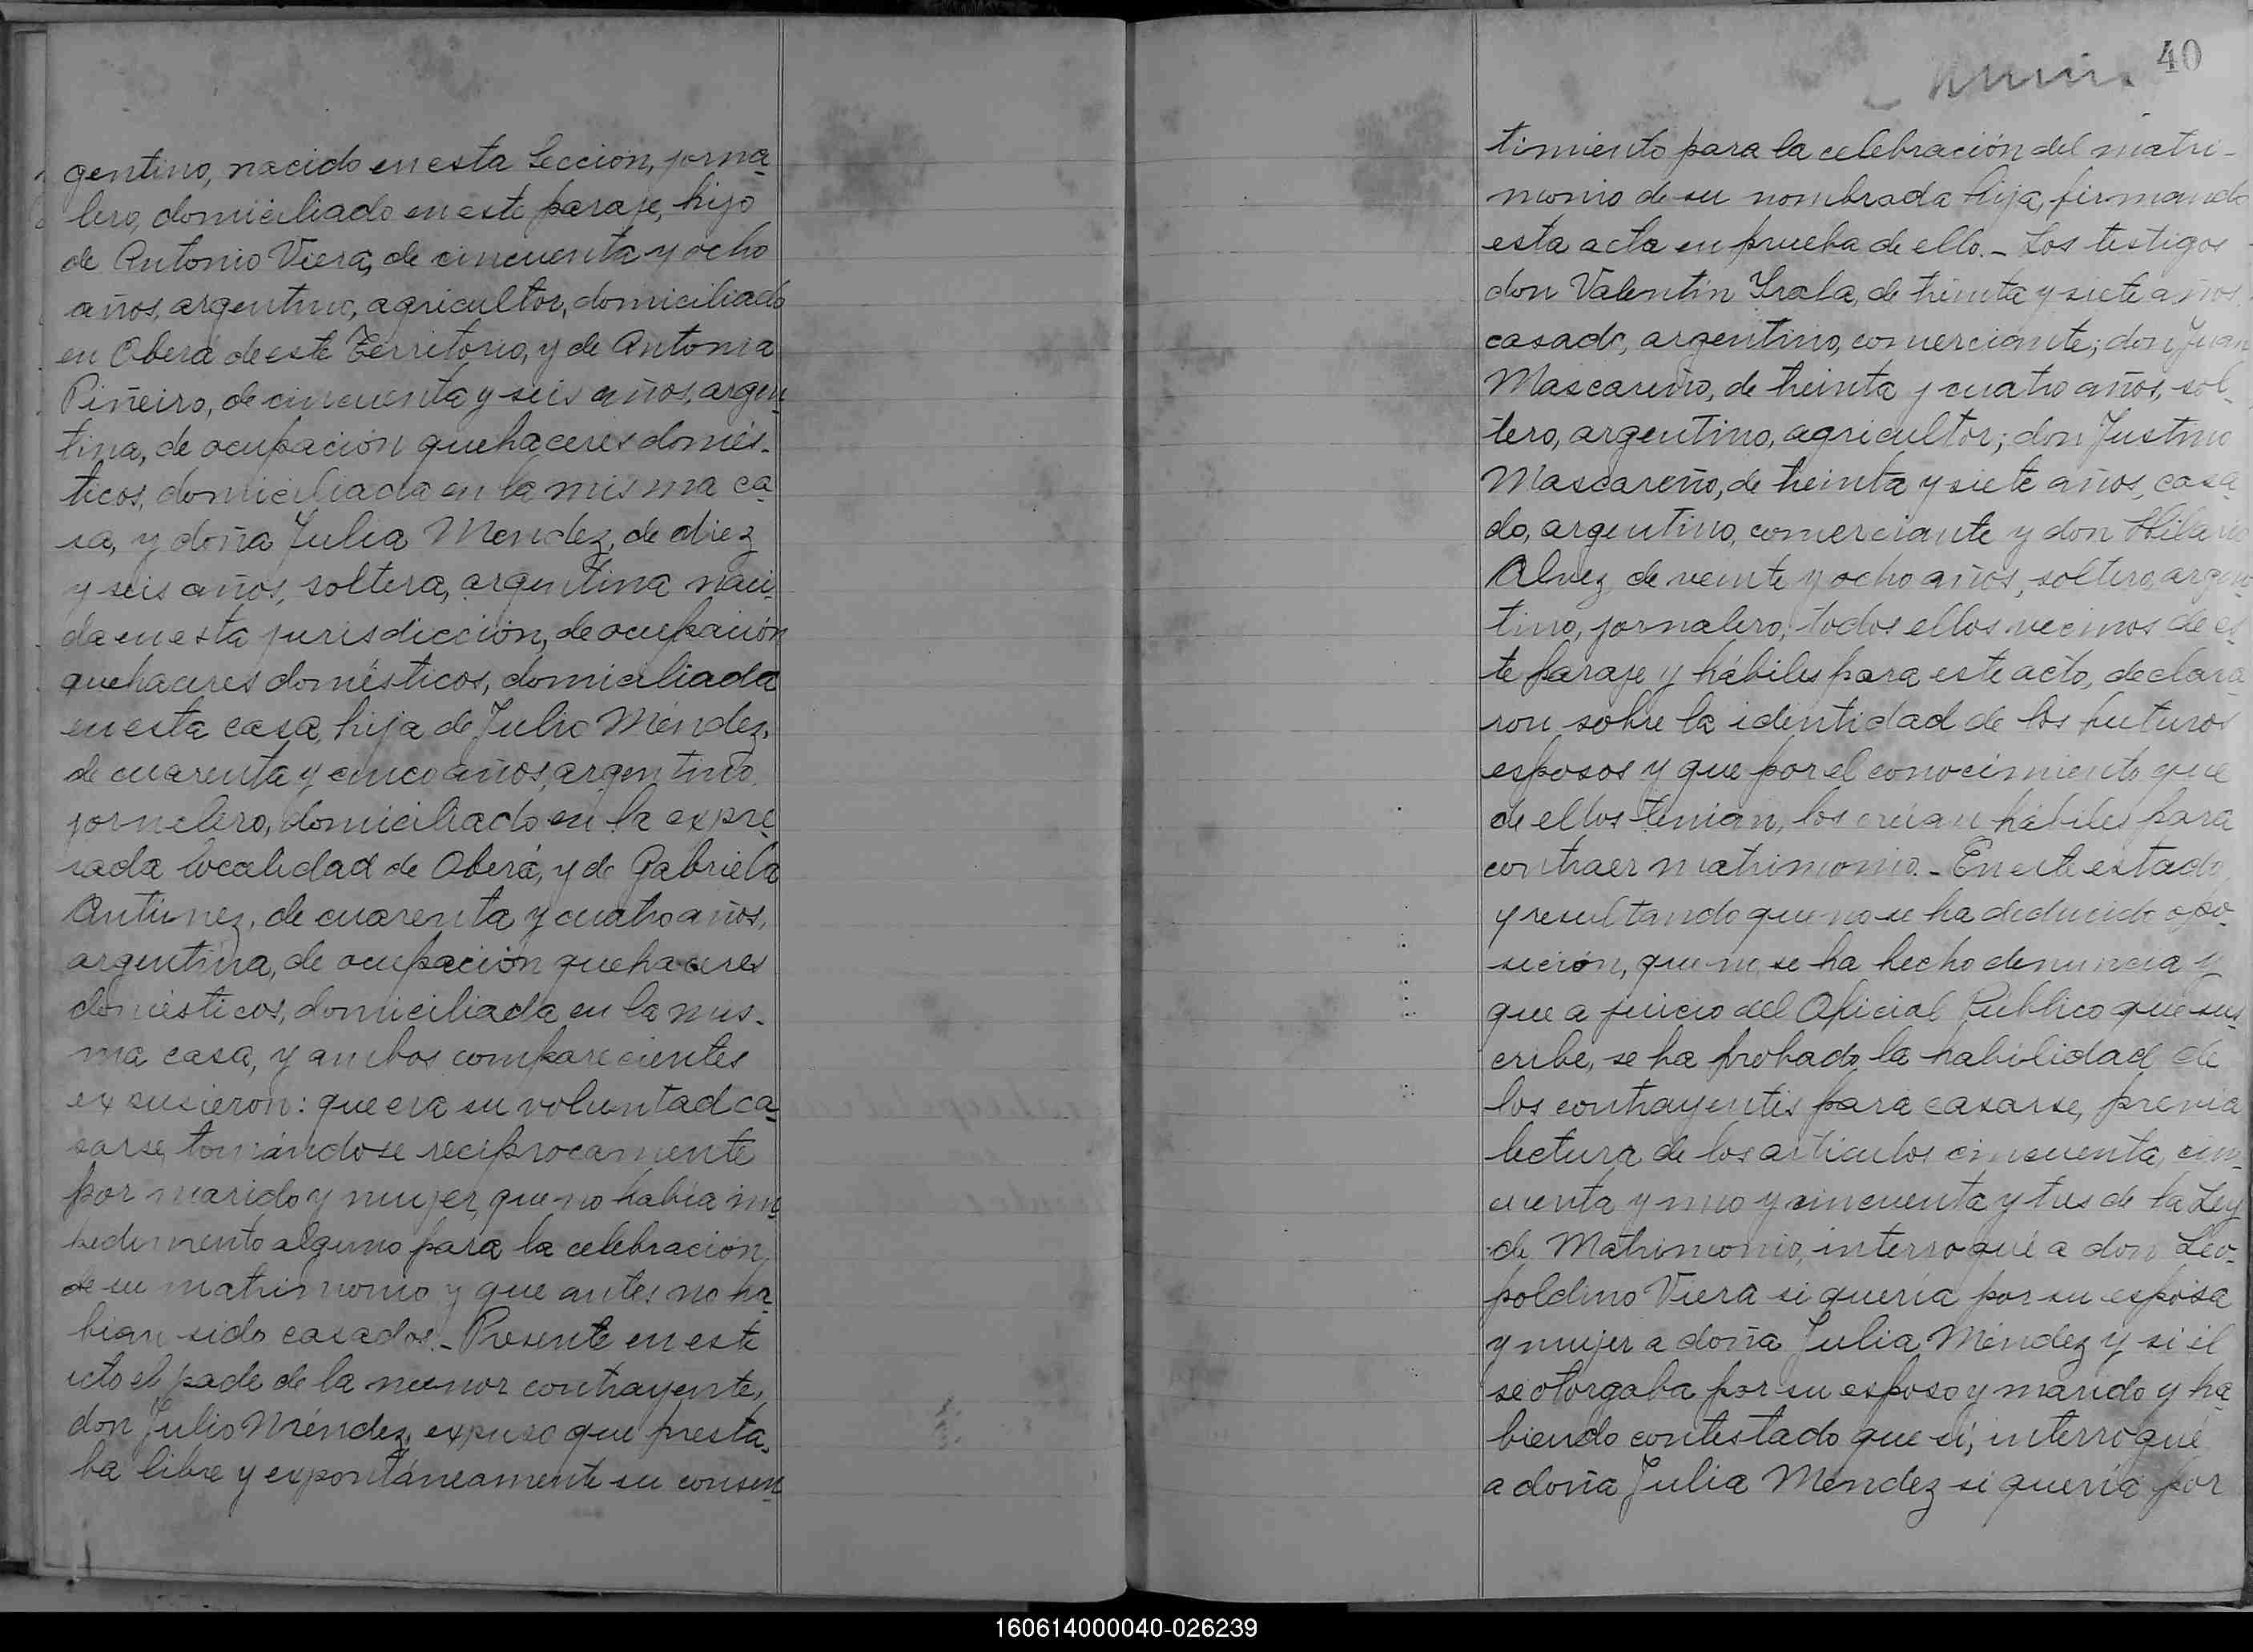 gentino, nacido en esta Sección, jorna
lero, domiciliado en este paraje, hijo
de Antonio Viera, de cincuenta y ocho
años, argentino, agricultor, domiciliado
en Oberá de este Territorio, y de Antonia
Piñeiro, de cincuenta y seis años, argen
tina, de ocupación quehaceres domés-
ticos, domiciliada en la misma ca
sa, y doña Julia Mendez, de diez
y seis años, soltera, argentina naci
da en esta jurisdicción, de ocupación
quehaceres domésticos, domiciliada
en esta casa, hija de Julio Méndez,
de cuarenta y cinco años, argentino,
jornalero, domiciliado en la expre
sada localidad de Oberá, y de Gabriela
Antunez, de cuarenta y cuatro años,
argentina, de ocupación quehaceres
domésticos, domiciliada en la mis-
ma casa, y ambos comparecientes
expusieron: que era su voluntad ca
sarse, tomándose reciprocamente
por marido y mujer, que no había im
pedimento alguno para la celebración
de su matrimonio y que antes no ha
bian sido casados.- Presente en este
acto el padre de la menor contrayente,
don Julio Méndez, expuso que presta-
ba libre y expontáneamente su consen
40
timiento para la celebración del matri-
monio de su nombrada hija, firmando
esta acta en prueba de ello.- Los testigos
don Valentín Irala, de treinta y siete años,
casado, argentino, comerciante; don Juan
Mascareño, de treinta y cuatro años, sol-
tero, argentino, agricultor; don Justino
Mascareño, de treinta y siete años, casa
do, argentino, comerciante y don Hilario
Alvez, de veinte y ocho años, soltero, argen
tino, jornalero, todos ellos vecinos de es
te paraje y hábiles para este acto, declara
ron sobre la identidad de los futuros
esposos y que por el conocimiento que
de ellos tenían, los creían hábiles para
contraer matrimonio.- En este estado
y resultando que no se ha deducido opo-
sición, que no se ha hecho denuncia y
que a juicio del Oficial Público que sus
cribe, se ha probado la habilidad de
los contrayentes para casarse, previa
lectura de los artículos cincuenta, cin
cuenta y uno y cincuenta y tres de la Ley
de Matrimonio, interrogué a don Leo-
poldino Viera si quería por su esposa
y mujer a doña Julia Méndez y si él
se otorgaba por su esposo y marido y ha
biendo contestado que sí, interrogué
a doña Julia Mendez si quería por
160614000040-026239